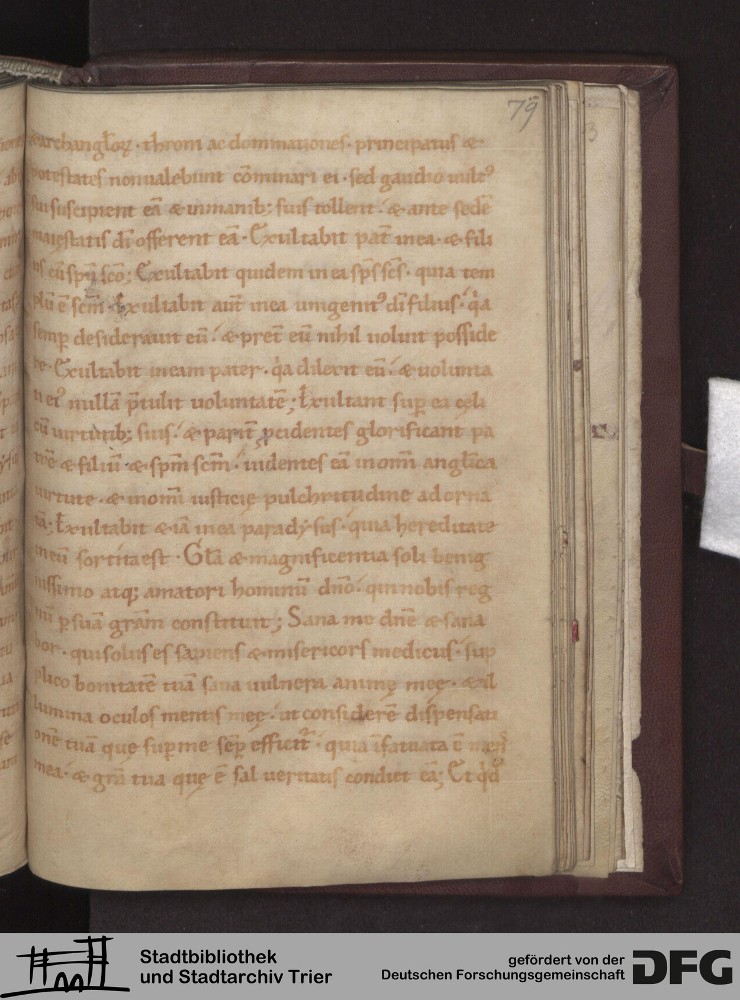 79
& archanglorꝝ · throni ac dominationes · principatus &
potestates non ualebunt cōminari ei · sed gaudio mult᷒
sui suscipient eā & in manib; suis tollent · & ante sedē
maiestatis dī offerent eā · Exultabit pat̄ in ea · & fili
us cū spū scō; Exultabit quidem in ea sps̄ scs̄ · quia tem
plū ē scm̄ · Exultabit aut̄ in ea unigenit᷒ dī filius · q̄a
semp desiderauit eū · & pret̄ eū nihil uoluit posside
re · Exultabit in eam pater · q̄a dilexit eū · & uolunta
ti ei᷒ nullā p̄tulit uoluntatē; Exultant sup ea cęli
cū uirtutib; suis · & parit̄ ꝓcidentes glorificant pa
trē & filiū & spm̄ scm̄ · uidentes eā in omī anglica
uirtute · & in omī iusticię pulchritudine adorna
tā; Exultabit & iā in ea paradysus · quia hereditate
meū sortita est · Glā & magnificentia soli benig
nissimo atq; amatori hominū dn̄o · qui nobis reg
nū p suā grām constituit; Sana me dn̄e & sana
bor · qui solus es sapiens & misericors medicus · sup
plico bonitatē tuā sana uulnera animę meę · & il
lumina oculos mentis meę · ut considerē dispensati
onē tuā quę sup me sep̄ efficit̄ · quia īfatuata ē
mea · & grā tua quę ē sal ueritatis condiet eā; Et qd̄
3
Stadtbibliothek
und Stadtarchiv Trier
gefördert von der
Deutschen Forschungsgemeinschaft
DFG